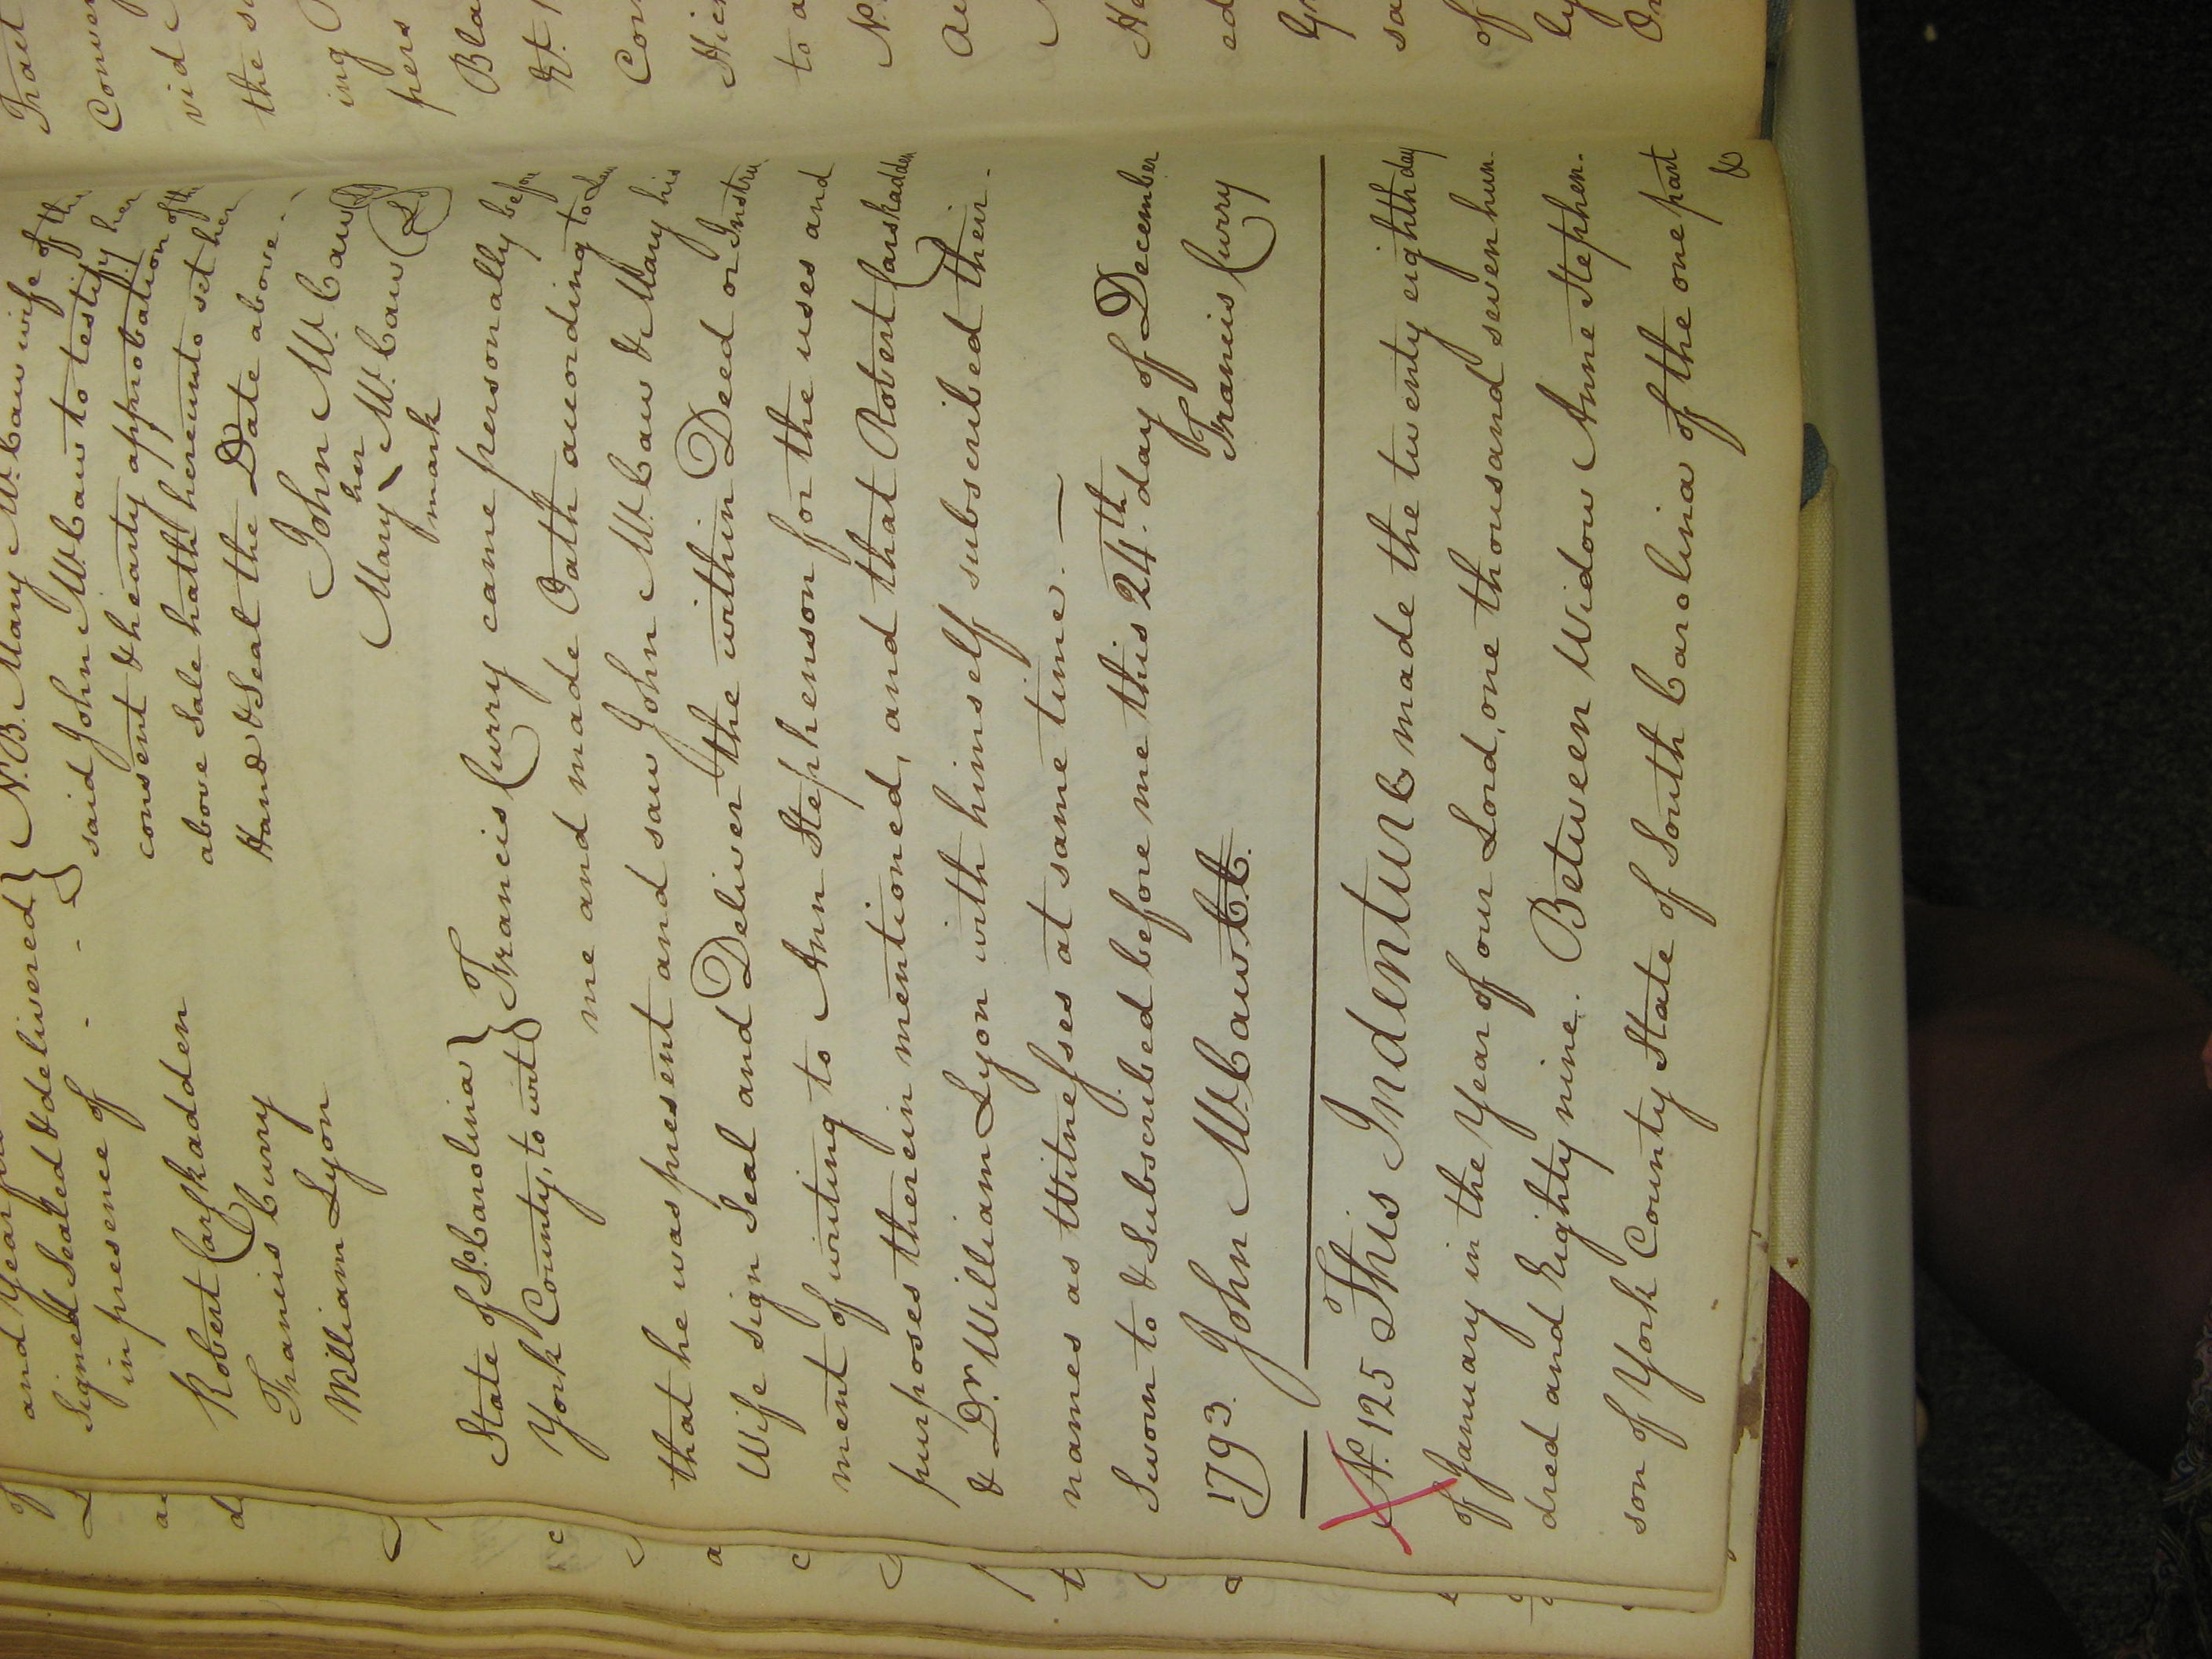 and Year
Signed Sealed & delivered } N.B. Mary McCaw wife of the
in presence of - - } said John McCaw to testify her
consent & hearty approbation of the
Robert Carskadden above Sale hath hereunto set her
Francis Curry Hand & Seal the Date above.
William Lyon John McCaw LS
her
Mary McCaw LS
mark
State of So. Carolina } Francis Curry came personally befor
York County, to wit } me and made Oath according to Law
that he was present and saw John McCaw & Mary his
Wife sign Seal and Deliver the within Deed or Instru
ment of writing to Ann Stephenson for the uses and
purposes therein mentioned, and that Robert Carskadden
& Dr. William Lyon with himself subscribed their -
names as Witnesses at same time. —
Sworn to & Subscribed before me this 24th. day of December
1793. John McCaw C.C. Francis Curry
N. 125 This Indenture made the twenty eighth day
of January in the Year of our Lord, one thousand seven hun-
dred and Eighty nine. Between Widow Anne Stephen-
son of York County State of South Carolina of the one part
&